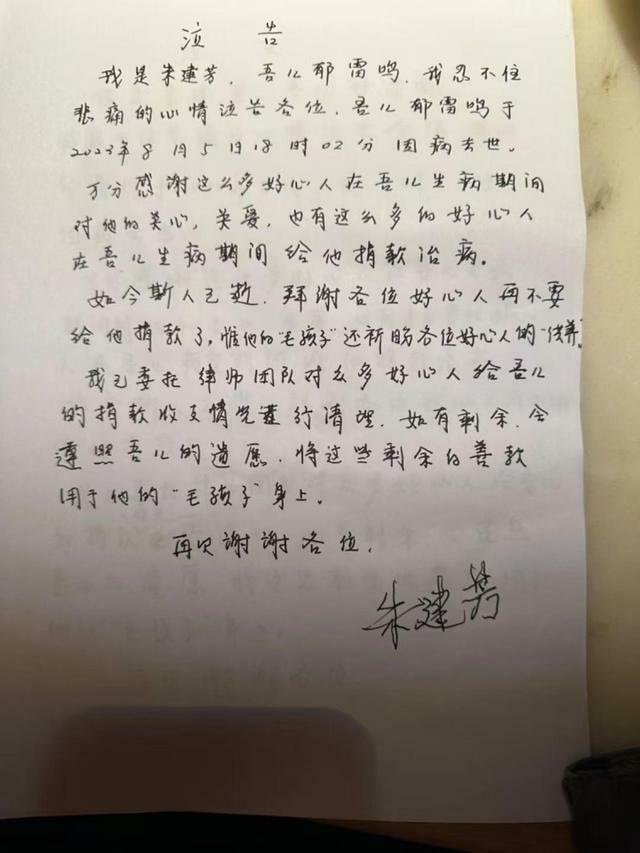 泣告
我是朱建芳，吾儿郁雷鸣，我忍不住
悲痛的心情泣告各位，吾儿郁雷鸣于
2023年8月5日18时02分因病去世。
万分感谢这么多好心人在吾儿生病期间
对他的关心，关爱，也有这么多的好心人
在吾儿生病期间给他捐款治病。
如今斯人已逝，拜谢各位好心人再不要
给他捐款了，惟他的“毛孩子”还祈盼各位好心人的“供养”。
我已委托律师团队对么多好心人给吾儿
的捐款收支情况进行清理，如有剩余，会
遵照吾儿的遗愿，将这些剩余的善款
用于他的“毛孩子”身上。
再次谢谢各位，
朱建芳